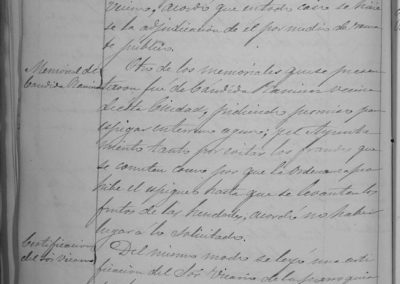 vecino, acordó que en todo caso se hicie
se la adjudicacion de el por medio de rema
te público.
Memorial de
Candida Ramirez
Otro de los memoriales que se presen
taron fué de Candida Ramirez vecina
de esta Ciudad, pidiendo permiso para
espigar en terreno ageno; y el Ayunta
miento tanto por evitar los fraudes que
se cometen como por que la Ordenanza pro
hibe el espigueo hasta que se levanten los
frutos de las heredades, acordó no haber
lugar a lo solicitado.
Certificacion
del Sor Vicario
Del mismo modo se leyó una certi
ficacion del Sor Vicario de la parroquia